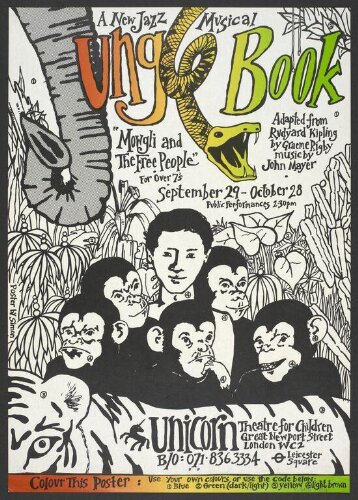 A New Jazz Musical
Jungle Book
"Mowgli and
The Free People"
For Over 7's
Adapted from
Rudyard Kipling
by Graeme Rigby
music by
John Mayer
September 29 - October 28
Public Performances 2:30pm
Poster W. Simon
Unicorn
Theatre for Children
Great Newport Street
London WC2
B/O: 071·836 3334
Leicester
Square
Colour This Poster : Use Your own colours, or use the code below:
Blue Green (dark/light) yellow light brown